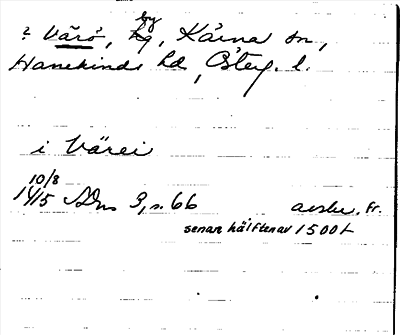 ? Värö, by, Kärna sn,
Hanekinds hd, Österg. l.
i Värei
10/8
1415 SDns 3, s. 66 avskr. fr.
senare hälften av 1500-t